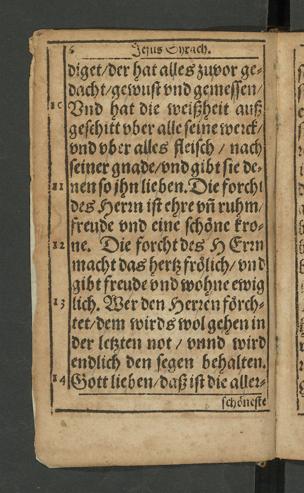 6 Jesus Syrach.
diget/der hat alles zuvor ge-
dacht/gewust vnd gemessen/
10 Vnd hat die weißheit auß
geschitt vber alle seine werck/
vnd vber alles fleisch / nach
seiner gnade/vnd gibt sie de-
11 nen so ihn lieben. Die forcht
des Herrn ist ehre vñ ruhm/
freude vnd eine schöne kro-
12 ne. Die forcht des HErrn
macht das hertz frölich/ vnd
gibt freude vnd wohne ewig
13 lich. Wer den Herren förch-
tet/dem wirds wol gehen in
der letzten not / vnnd wird
endlich den segen behalten.
14 Gott lieben/daß ist die aller-
schöneste